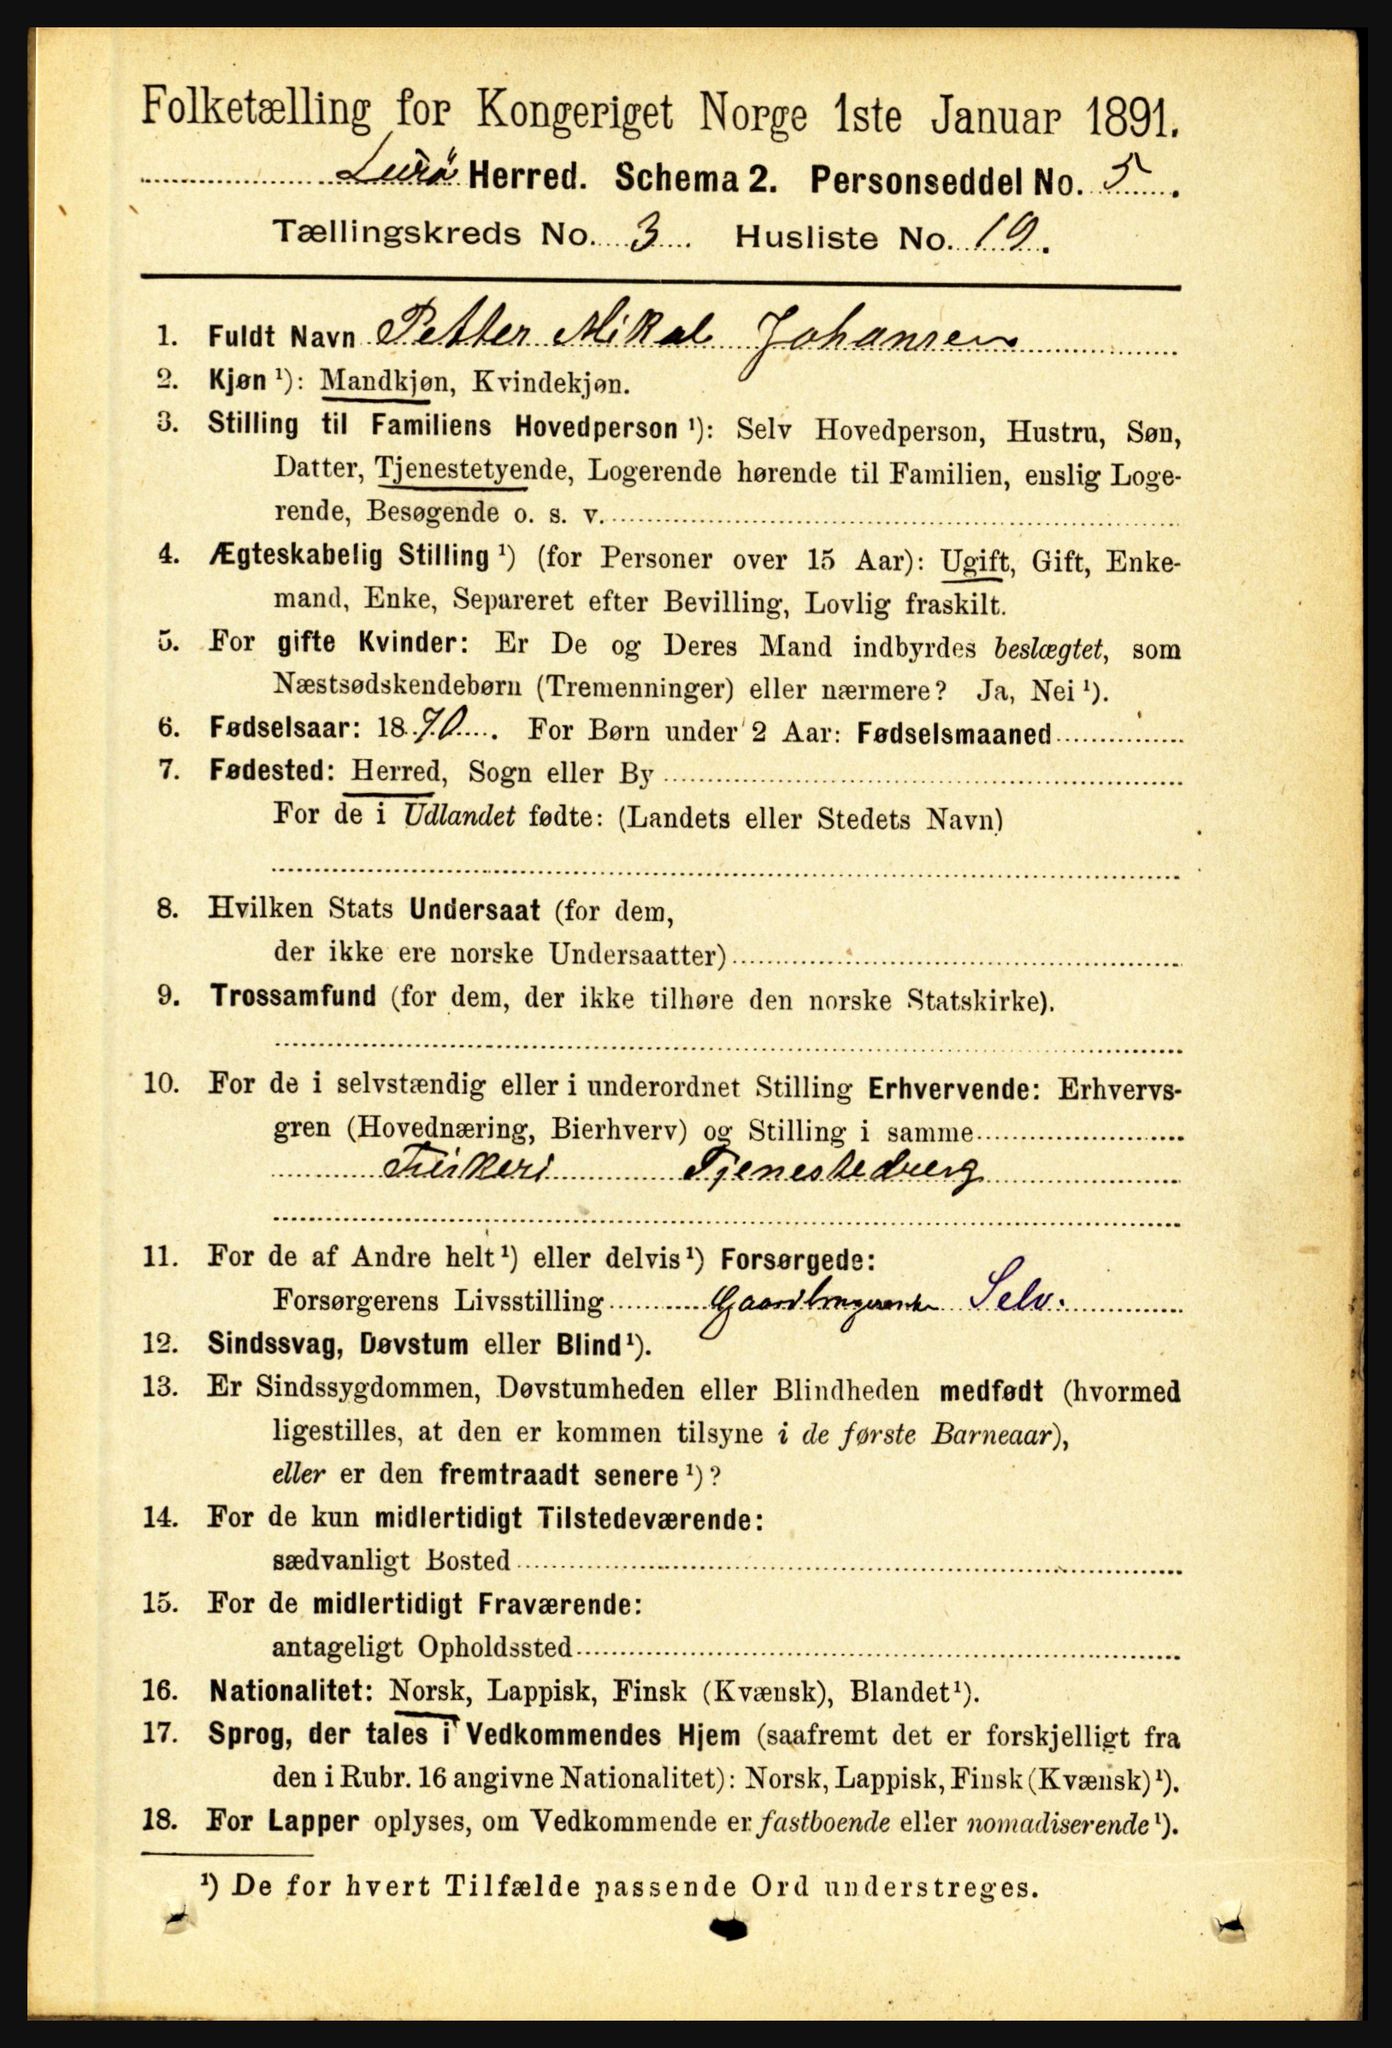 Folketælling for Kongeriget Norge 1ste Januar 1891.
Lurö Herred. Schema 2. Personseddel No. 5.
Tællingskreds No. 3. Husliste No. 19.
1. Fuldt Navn Petter Mikal Johansen
2. Kjøn ¹): Mandkjøn, Kvindekjøn.
3. Stilling til Familiens Hovedperson ¹): Selv Hovedperson, Hustru, Søn,
Datter, Tjenestetyende, Logerende hørende til Familien, enslig Loge-
rende, Besøgende o. s. v.
4. Ægteskabelig Stilling ¹) (for Personer over 15 Aar): Ugift, Gift, Enke-
mand, Enke, Separeret efter Bevilling, Lovlig fraskilt.
5. For gifte Kvinder: Er De og Deres Mand indbyrdes beslægtet, som
Næstsødskendebørn (Tremenninger) eller nærmere? Ja, Nei ¹).
6. Fødselsaar: 1870. For Børn under 2 Aar: Fødselsmaaned
7. Fødested: Herred, Sogn eller By
For de i Udlandet fødte: (Landets eller Stedets Navn)
8. Hvilken Stats Undersaat (for dem,
der ikke ere norske Undersaatter)
9. Trossamfund (for dem, der ikke tilhøre den norske Statskirke).
10. For de i selvstændig eller i underordnet Stilling Erhvervende: Erhvervs-
gren (Hovednæring, Bierhverv) og Stilling i samme
Fiskeri Tjenestedreng
11. For de af Andre helt ¹) eller delvis ¹) Forsørgede:
Forsørgerens Livsstilling Selv.
12. Sindssvag, Døvstum eller Blind ¹).
13. Er Sindssygdommen, Døvstumheden eller Blindheden medfødt (hvormed
ligestilles, at den er kommen tilsyne i de første Barneaar),
eller er den fremtraadt senere ¹)?
14. For de kun midlertidigt Tilstedeværende:
sædvanligt Bosted
15. For de midlertidigt Fraværende:
antageligt Opholdssted
16. Nationalitet: Norsk, Lappisk, Finsk (Kvænsk), Blandet ¹).
17. Sprog, der tales i Vedkommendes Hjem (saafremt det er forskjelligt fra
den i Rubr. 16 angivne Nationalitet): Norsk, Lappisk, Finsk (Kvænsk) ¹).
18. For Lapper oplyses, om Vedkommende er fastboende eller nomadiserende ¹).
¹) De for hvert Tilfælde passende Ord understreges.